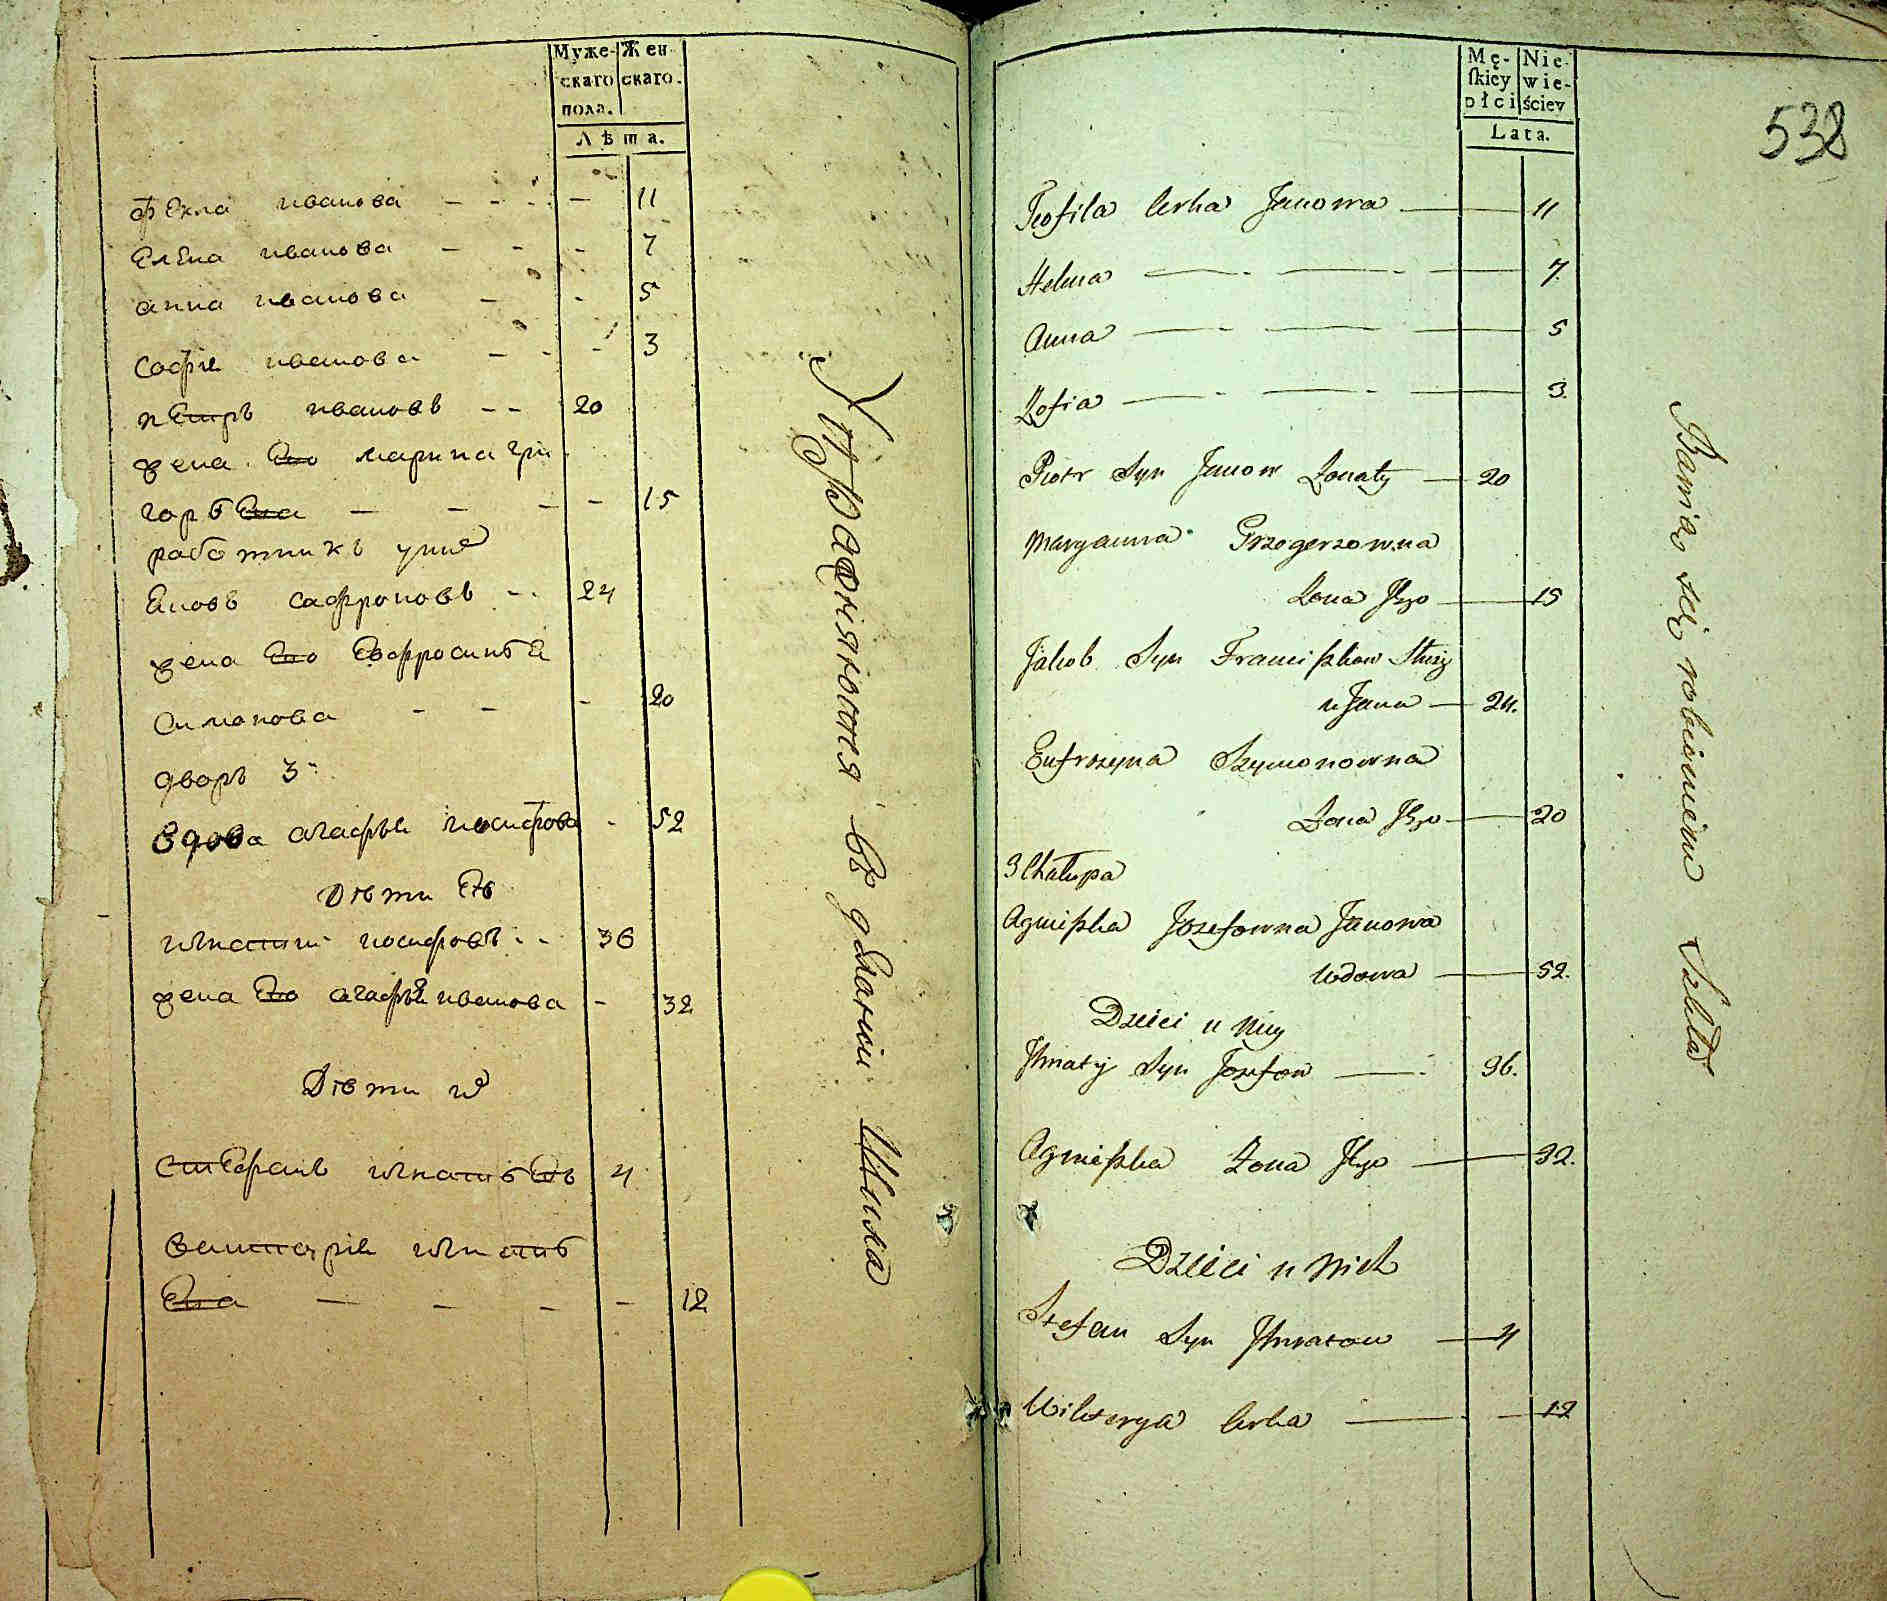 Муже-
скаго
пола.
Жен
скаго.
Лѣта.
фекла иванова - - - - 11
елена иванова - - - 7
анна иванова - - 5
софiя иванова - - - 3
петръ ивановъ - - 20
жена его марина гри
горъева - - - - 15
работникъ у них
яковъ сафроновъ - - 24
жена его евфросинъя
симонова - - - 20
дворъ 3
вдова агафья иосифова - 52
дѣти ея
игнатий иосифовъ - - 36
жена его агафья иванова - 32
дѣти их
стефанъ игнатьевъ 4
виктория игнать
ева - - - - 12
Упражняются въ деланiи
538
Mę-
ſkiey
płci
Nie-
wie-
ściey
Lata.
Teofila Corka Janowa — 11
Helena — - — - — 7.
Anna — - — - — 5
Zofia — - — - — 3.
Piotr Syn Janow Zonaty — 20
Maryanna Grzegorzowna
Zona Jego — 15
Jakob Syn Franciszkow Służy
u Jana — 24.
Eufrozyna Szymonowna
Zona Jego — 20
3 Chałupa
Agnieszka Jozefowna Janowa
Wdowa — 52.
Dzieci u Niey
Ihnaty Syn Jozefow — 36.
Agnieszka Zona Jego — 32.
Dzieci u Nich
Stefan Syn Ihnatow — 4
Wiktorya Corka — 12
Bawią się robieniem